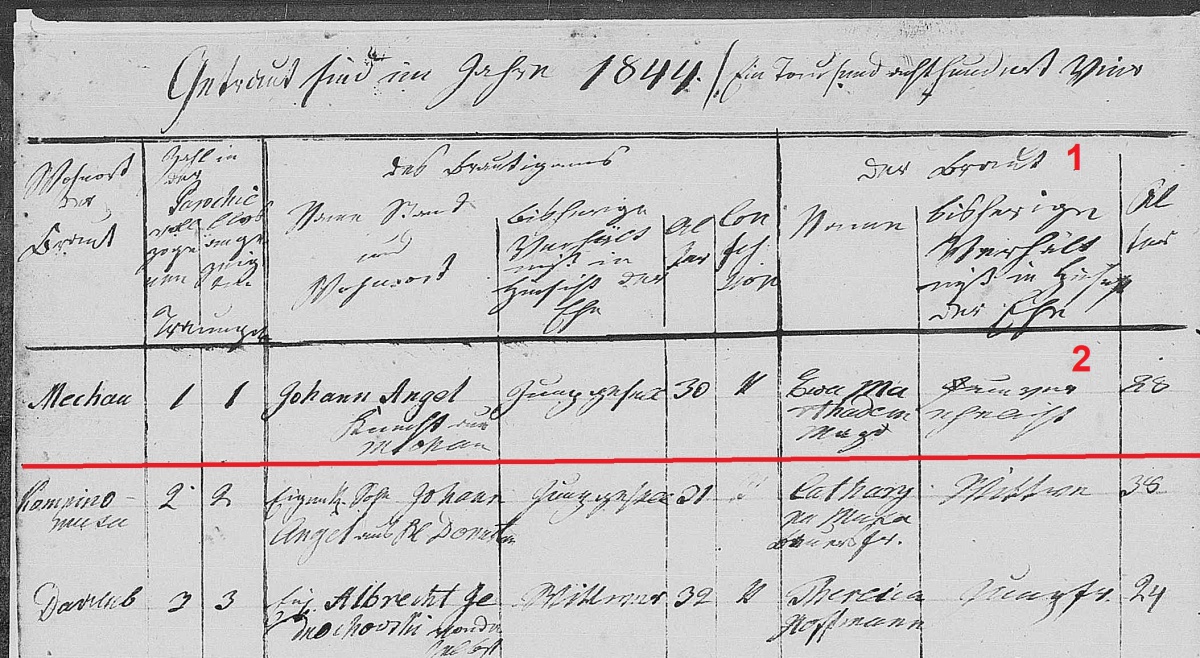 Getraut sind im Jahre 1844. / Ein Tausend achthundert Vier
Wohnort
der
Braut
Zahl in
der
Parochie
voll
zoge
nen
blos
ange
zeig
ten
Trauungen
des Bräutigams
Name Stand
und
Wohnort
bisherige
Verhält
niß in
Hinsicht der
Ehe
Al
ter
Con
fes
sion
der Braut
1
Name
bisherige
Verhält
niß in Hinsicht
der Ehe
Al
ter
2
Mechau
1
1
Johann Angel
Knecht aus
Mechau
Junggesell
30
K
Ewa Ma
Magd
unver
ehelicht
28
2
2
Eigenth. Sohn Johann
Angel aus Kl
Junggesell
31
Cathary
na
Wittwe
38
3
3
Albrecht Ge
Wittwer
32
K
Theresia
Hoffmann
Jungfr.
24